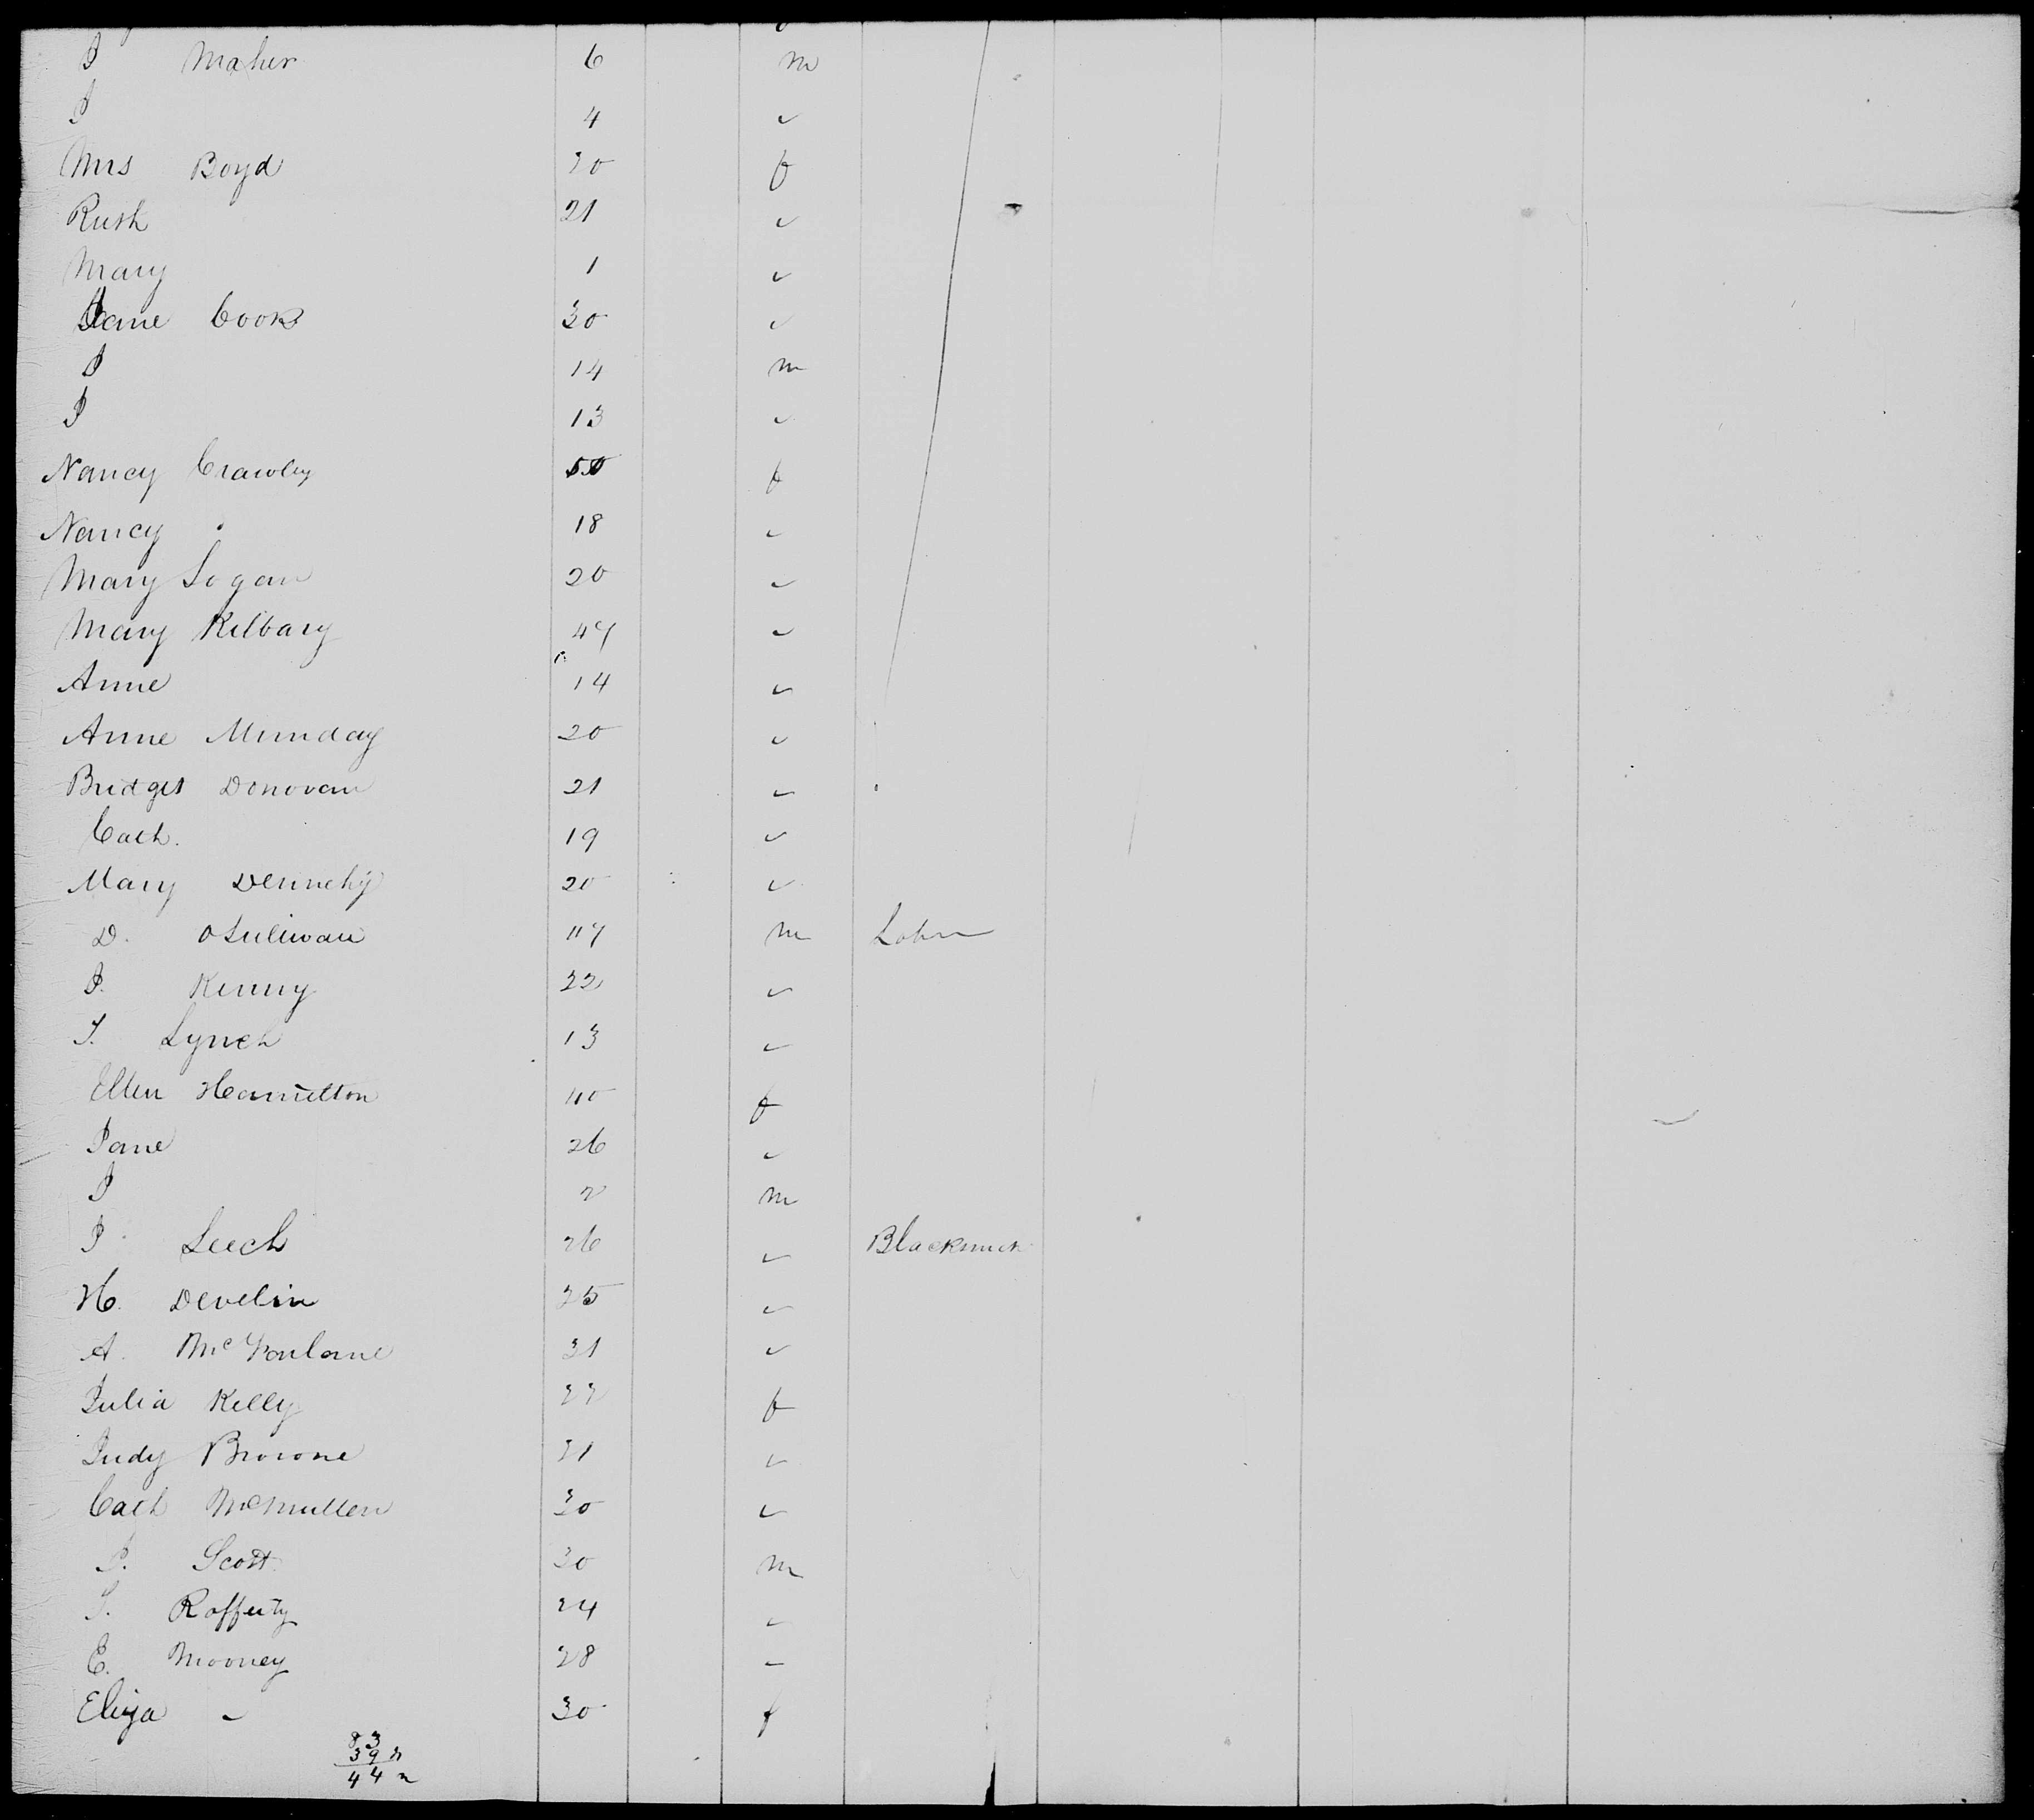 J Maher 6 m
J 4 ✓
Mrs Boyd 20 f
Ruth 21 ✓
Mary 1 ✓
Jane Cook 30 ✓
J 14 m
J 13 ✓
Nancy Crawley 50 f
Nancy 18 ✓
Mary Logan 20 ✓
Mary Kilbary 47 ✓
Anne 14 ✓
Anne Munday 20 ✓
Bridget Donovan 21 ✓
Cath. 19 ✓
Mary Dennehy 20 ✓
D. OSulivan 47 m Labr
J. Kenny 22 ✓
T. Lynch 13 ✓
Ellen Hamilton 40 f
Jane 26 ✓
J 2 m
J Leech 26 ✓ Blacksmith
H. Develin 25 ✓
A. McFarlane 31 ✓
Julia Kelly 22 f
Judy Browne 21 ✓
Cath McMullen 30 ✓
J. Scott 30 m
T. Rafferty 24 ✓
E. Mooney 28 –
Eliza – 30 f
83
39
44